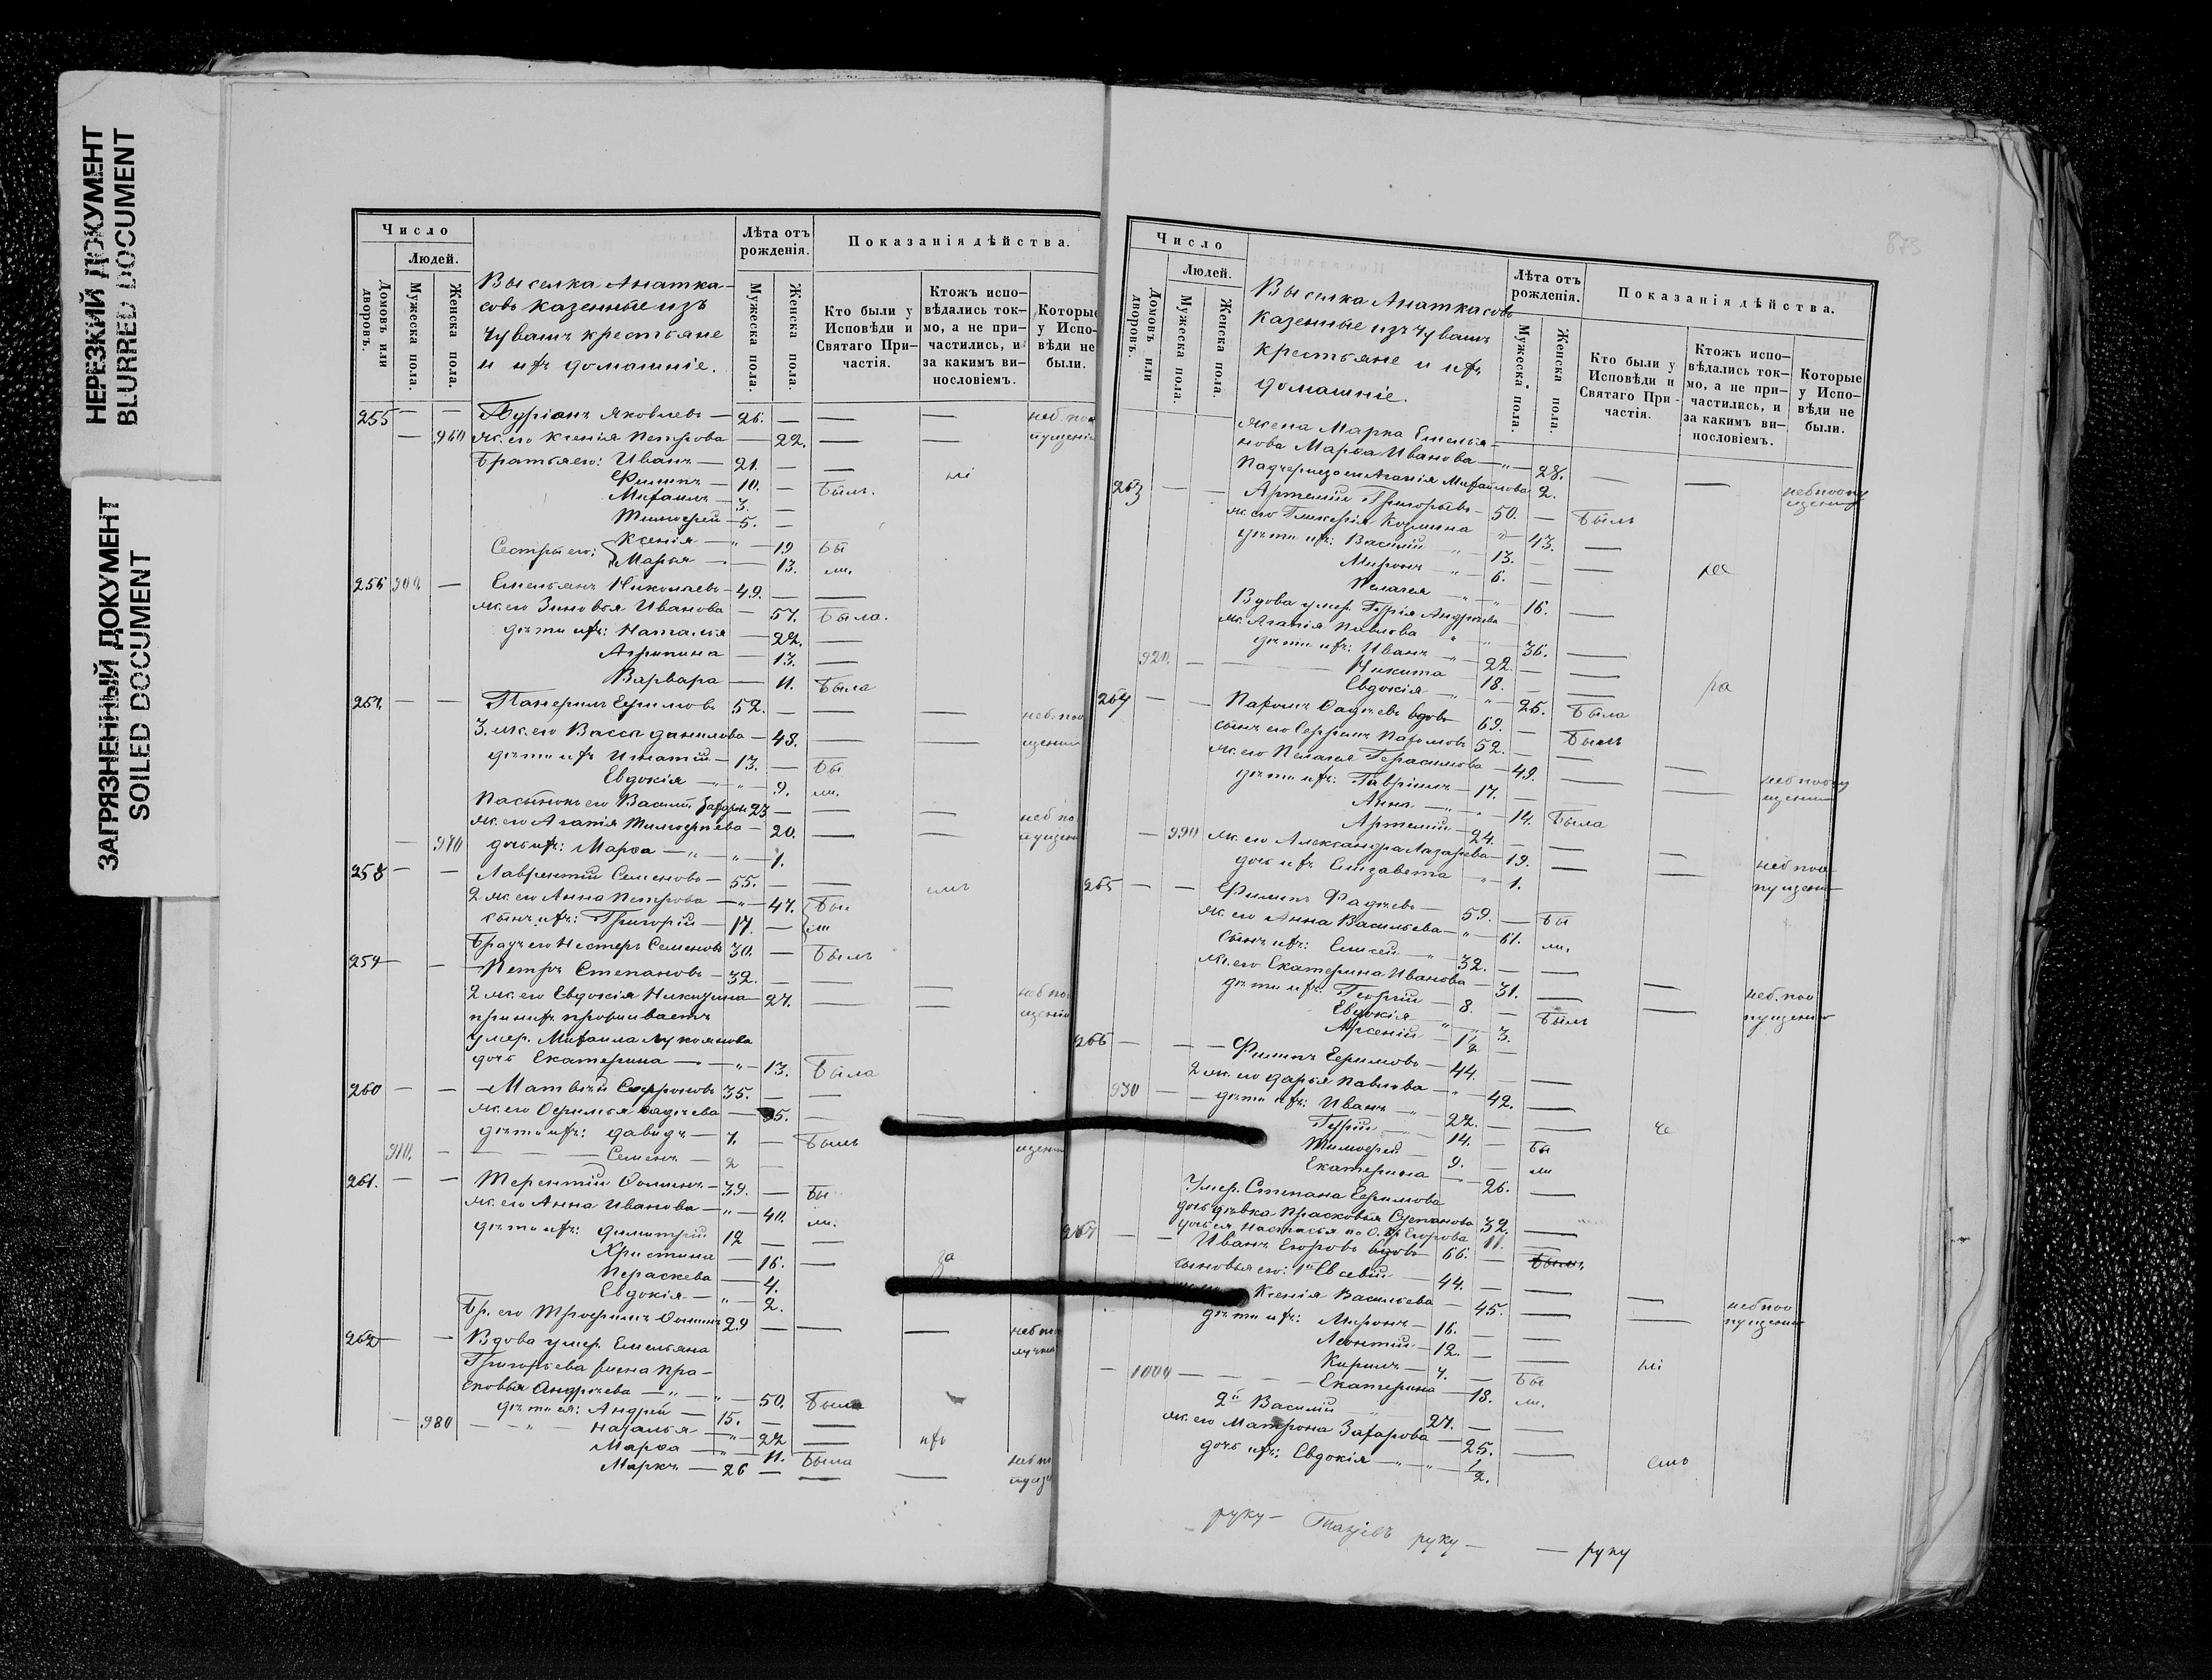 НЕРЕЗКИЙ ДОКУМЕНТ
BLURRED DOCUMENT
ЗАГРЯЗНЕННЫЙ ДОКУМЕНТ
SOILED DOCUMENT
Число
Людей.
Домовъ или дворовъ.
Мужеска пола.
Женска пола.
Выселка Анатка-
совъ казенные изъ
чувашъ крестьяне
и ихъ домашніе.
Лѣта отъ рожденія.
Мужеска пола.
Женска пола.
Показанія дѣйства.
Кто были у Исповѣди и Святаго Причастія.
Ктожъ исповѣдались токмо, а не причастились, и за какимъ винословіемъ.
Которые у Исповѣди не были.
255 — — Адріанъ Яковлевъ — 26. — — —
— 960 ж. его Ксенія Петрова — 22. — —
Братья его: Иванъ — 21. — —
Филиппъ — 10. — Былъ.
Михаилъ — 3. —
Тимоѳей — 5. —
Сестры его: Ксенія — " — 19 Бы
Марья — — 13. ли.
256 900. — Емельянъ Николаевъ — 49. — —
ж. его Зиновья Иванова — 57. Была.
дѣти ихъ: Наталья — 22. —
Агрипина — 13. —
Варвара — 11. Была
257. — — Панфилъ Ефимовъ 52. — — —
3. ж. его Васса Данилова — 48. — —
дѣти ихъ Игнатій — 13. — Бы
Евдокія — " — 9. ли.
Пасынокъ его Василій 23 — — —
ж. его Агапія Тимоѳеева — 20. — —
— 970 дочь ихъ: Марѳа — " — " — 1.
258 — — Лаврентій Семеновъ — 55. — —
2 ж. его Анна Петрова — " — 47. Бы
сынъ ихъ: Григорій — 17. — ли
Братъ его Нестеръ Семеновъ 30. — Былъ
259 — — Петръ Степановъ — 32. —
2 ж. его Евдокія Никизина — 27. — —
при нихъ проживаетъ
умер. Михаила Лукоянова
дочь Екатерина — " — 13. Была
260 — — Матвѣй Софроновъ 35. — —
ж. его Офимья Фадѣева — 35. — —
дѣти ихъ: Давидъ — 7. — Былъ
910. — — Семенъ — 2 —
261. — — Терентій Фоминъ — 39. — Бы
ж. его Анна Иванова — " — 40. ли.
дѣти ихъ: Димитрій 12 — —
Христина — 16. —
Параскева — 4.
Евдокія — " — 2.
Бр. его Трофимъ Фоминъ 29 — — —
262 — Вдова умер. Емельяна
Григорьева жена Пра-
сковья Андреева — " — " — 50. Была
дѣти ея: Андрей — 15. — —
— 980 — " — Наталья — " — 22 —
Марѳа — " — 11. Была
Маркъ — 26 — — —
873
Число
Людей.
Домовъ или дворовъ.
Мужеска пола.
Женска пола.
Выселка Анаткасовъ
казенные изъ чувашъ
крестьяне и ихъ
домашніе.
Лѣта отъ рожденія.
Мужеска пола.
Женска пола.
Показанія дѣйства.
Кто были у Исповѣди и Святаго Причастія.
Ктожъ исповѣдались токмо, а не причастились, и за какимъ винословіемъ.
Которые у Исповѣди не были.
жена Марка Емелья-
нова Марѳа Иванова — " — 28. — —
Падчерица ея Агапія Михайлова 2.
263 — — Артемій Григорьевъ — 50. — Былъ
ж. его Гликерія Козмина " — 43. —
дѣти ихъ: Василій — " — 13. — —
Миронъ — " — 6. —
Пелагея — " — " — 16. —
Вдова умер. Гурія Андреева
ж. Агапія Павлова " — " — 36. —
дѣти ихъ: Иванъ — " — 22. — —
920. — — Никита — 18. — —
Евдокія — " — " — 25. Была
264 — — Пахомъ Фадѣевъ вдовъ 69. — Былъ
сынъ его Серрипъ Пахомовъ 52. — —
ж. его Пелагея Герасимова — 49. — —
дѣти ихъ: Гавріилъ — 17. — —
Анна — " — " — 14. Была
Артемій — 24. — — —
— 990 ж. его Александра Лазарева — 19. — —
дочь ихъ Елизавета " — 1.
265 — — Филипъ Фадѣевъ — 59. — Бы
ж. его Анна Васильева — " — 61. ли.
сынъ ихъ: Елисей — " — 32. — — —
ж. его Екатерина Иванова — 31. — —
дѣти ихъ: Георгій — 8. — Былъ
Евдокія — " — " — 3.
Арсеній — 1/2 —
266 — — Филипъ Ефимовъ — 44. — —
2 ж. его Дарья Павлова — " — 42. —
930 — — дѣти ихъ: Иванъ — " — 22. — —
Гурій — 14. — Бы
Тимоѳей — 9. — ли
Екатерина — — 26. —
Умер. Степана Ефимова
дочь дѣвка Прасковья Степанова 32. —
дочь ея Настасья по О. кр. Егорова 11. —
267 — — Иванъ Егоровъ вдовъ — 66. — Былъ
сыновья его: 1й Евсевій — 44. — — —
Ксенія Васильева — 45. — —
дѣти ихъ: Миронъ — 16. — —
Леонтій — 12. — —
Кирилъ — 7. — Бы
— 1000 — — Екатерина — 13. ли.
2й Василій — 27. — —
ж. его Матрона Захарова — 25. —
дочь ихъ: Евдокія — " — " — 1/2.
руку — руку — — руку